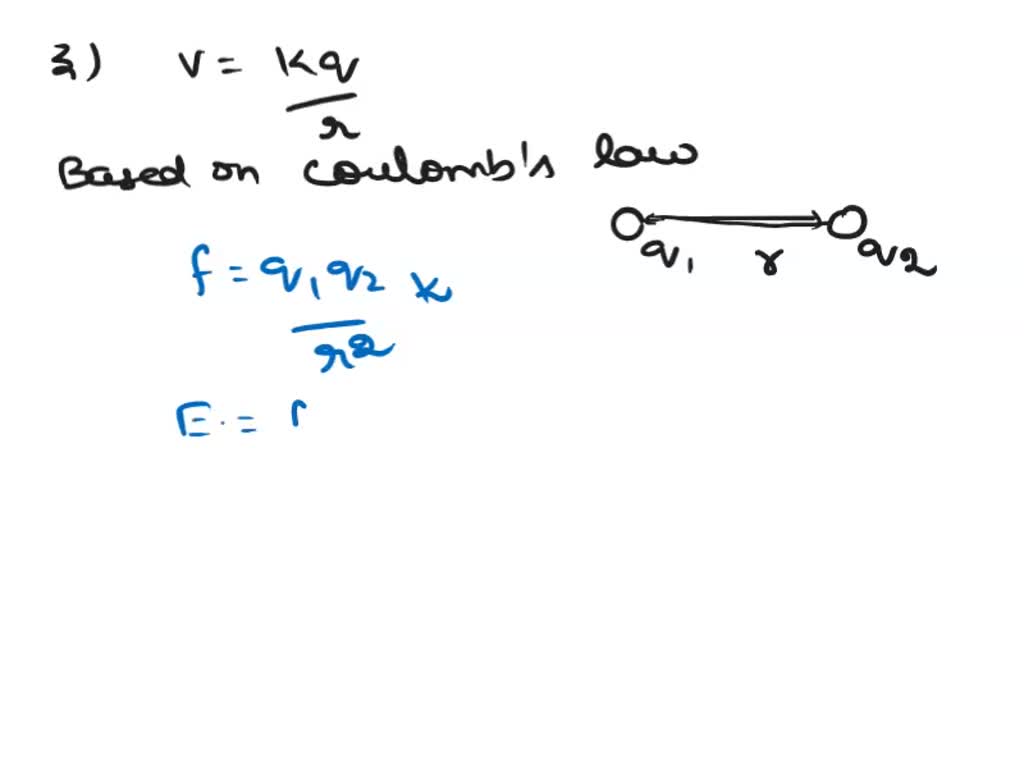 3) V = Kq
r
Based on coulomb's law
q1 r q2
f = q1 q2 K
r2
E. =